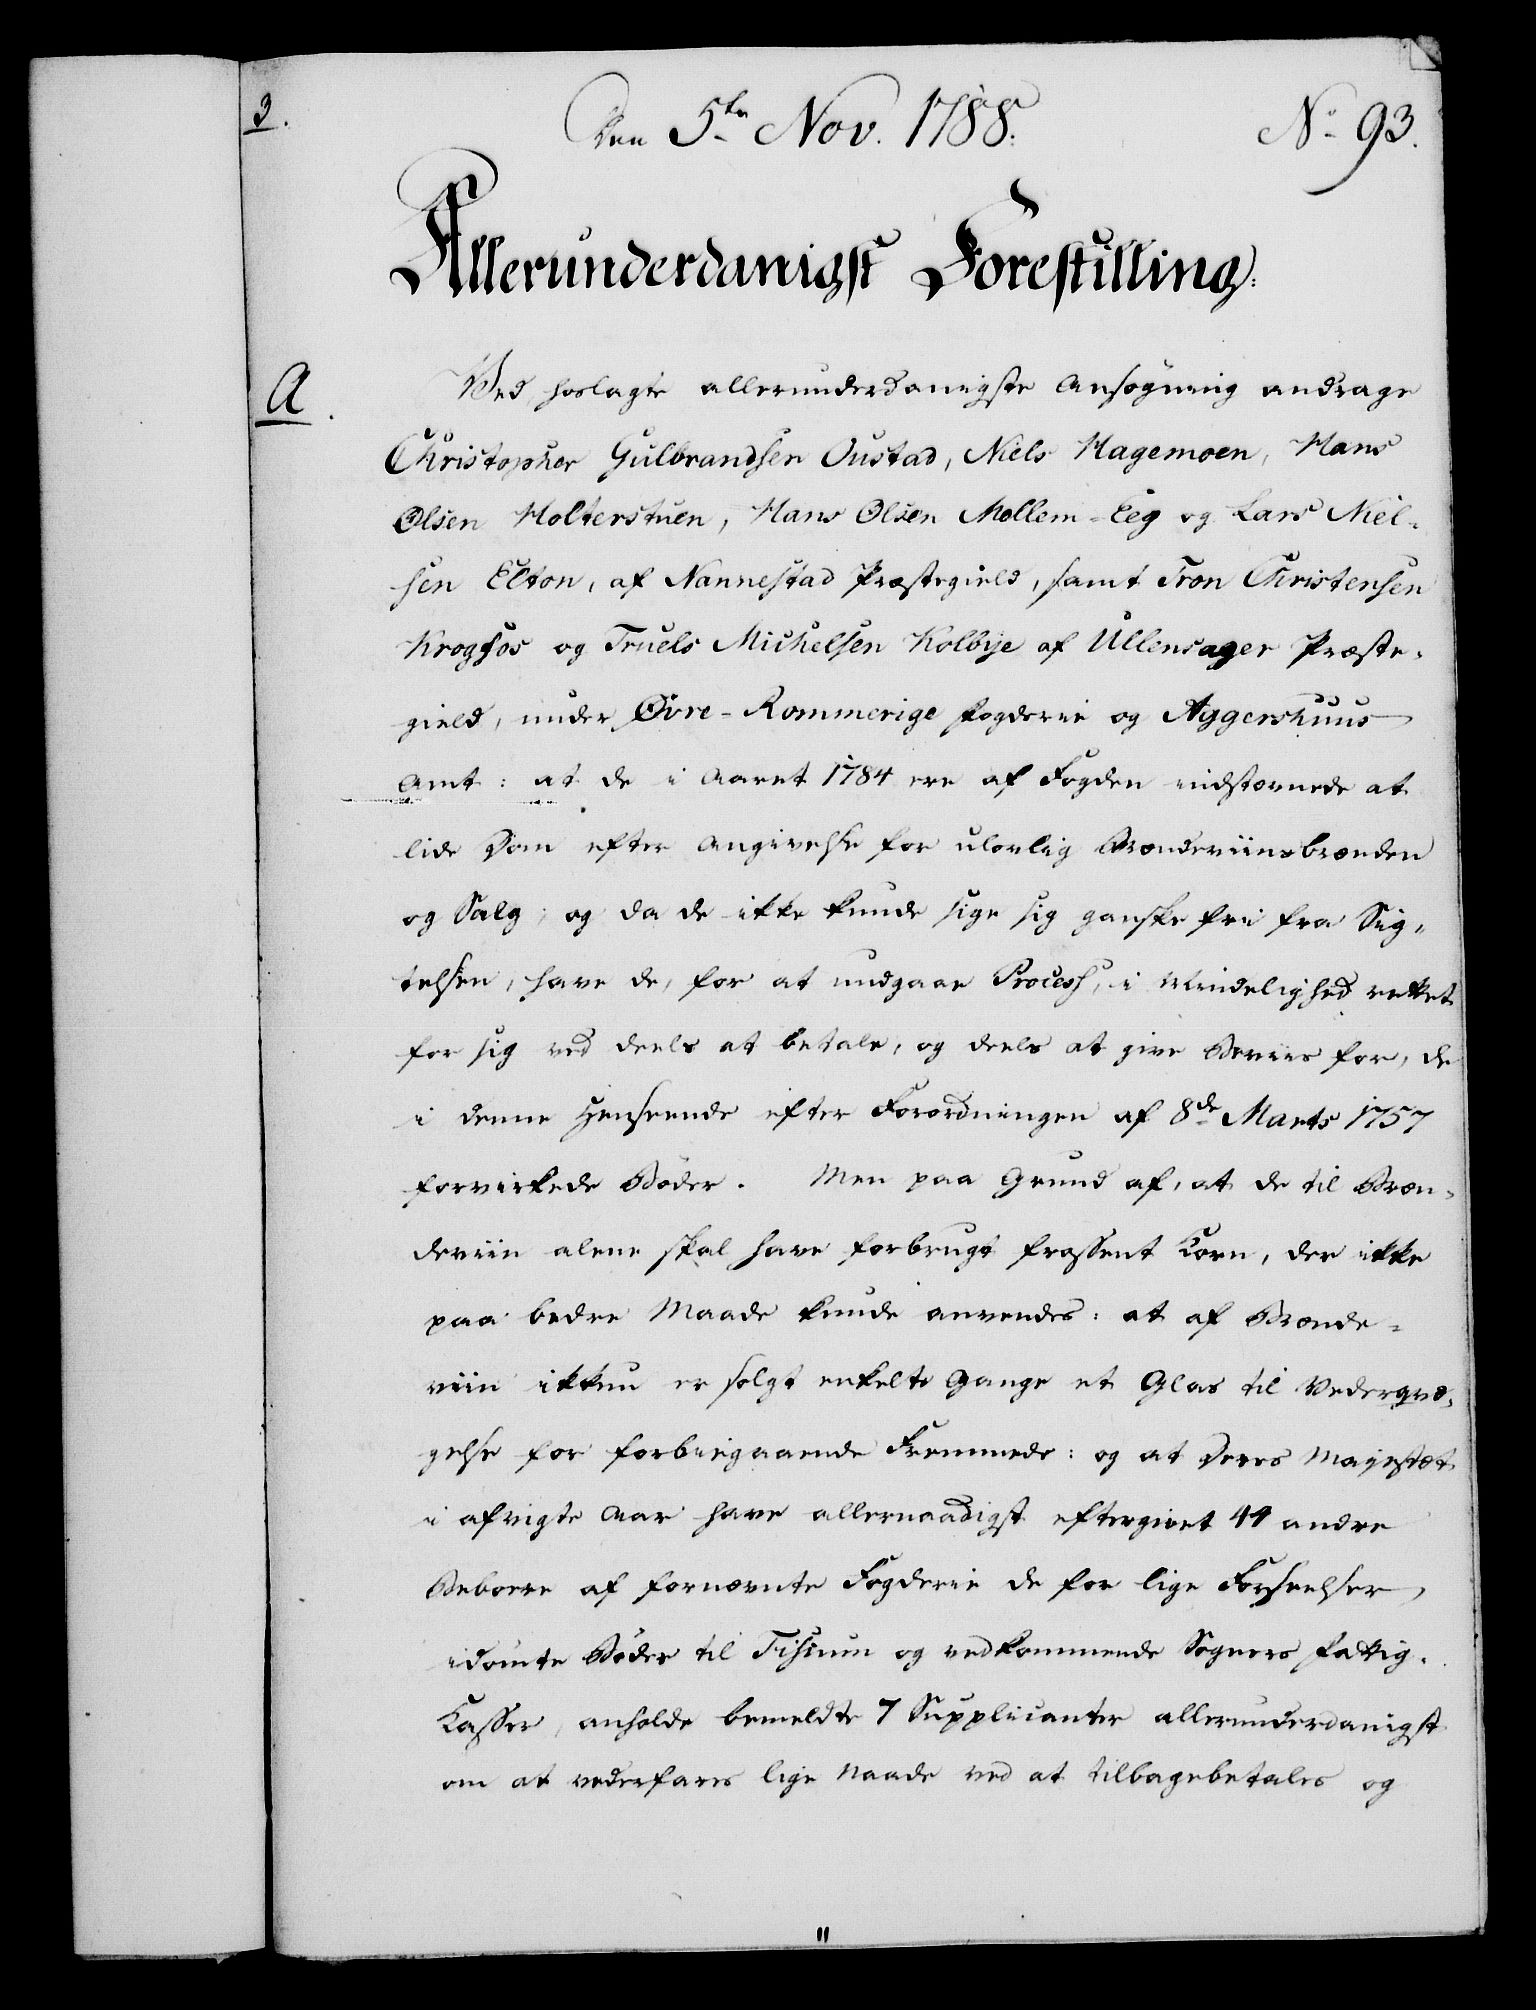 3.
Den 5te Nov. 1788.
No 93.
Allerunderdanigst Forestilling.
A.
Ved hoslagte allerunderdanigste Ansøgning andrage
Christopher Gulbrandsen Oustad, Niels Hagemoen, Hans
Olsen Holterstuen, Hans Olsen Mollem-Eeg og Lars Niel-
sen Elton, af Nannestad Præstegield, samt Tron Christensen
Krogfos og Truels Michelsen Kolbye af Ullensager Præste-
gield, under Øvre-Rommerige Fogderie og Aggershuus
Amt: at de i Aaret 1784 ere af Fogden indstævnede at
lide Dom efter Angivelse for ulovlig Brændeviinsbrænden
og Salg; og da de ikke kunde sige sig ganske fri fra Sig-
telsen, have de, for at undgaae Process, i Mindelighed rettet
for sig ved deels at betale, og deels at give Beviis for, de
i denne Henseende efter Forordningen af 8de Marts 1757
forvirkede Bøder. Men paa Grund af, at de til Bræn-
deviin alene skal have forbrugt frossent Korn, der ikke
paa bedre Maade kunde anvendes: at af Brænde-
viin ikkun er solgt enkelte Gange et Glas til Vederqvæ-
gelse for forbiegaaende Fremmede: og at Deres Majestæt
i afvigte Aar have allernaadigst eftergivet 44 andre
Beboere af fornævnte Fogderie de for lige Forseelser
idømte Bøder til Fiscum og vedkommende Sognes Fattig-
Kasser, anholde bemeldte 7 Supplicanter allerunderdanigst
om at vederfares lige Naade ved at tilbagebetales og